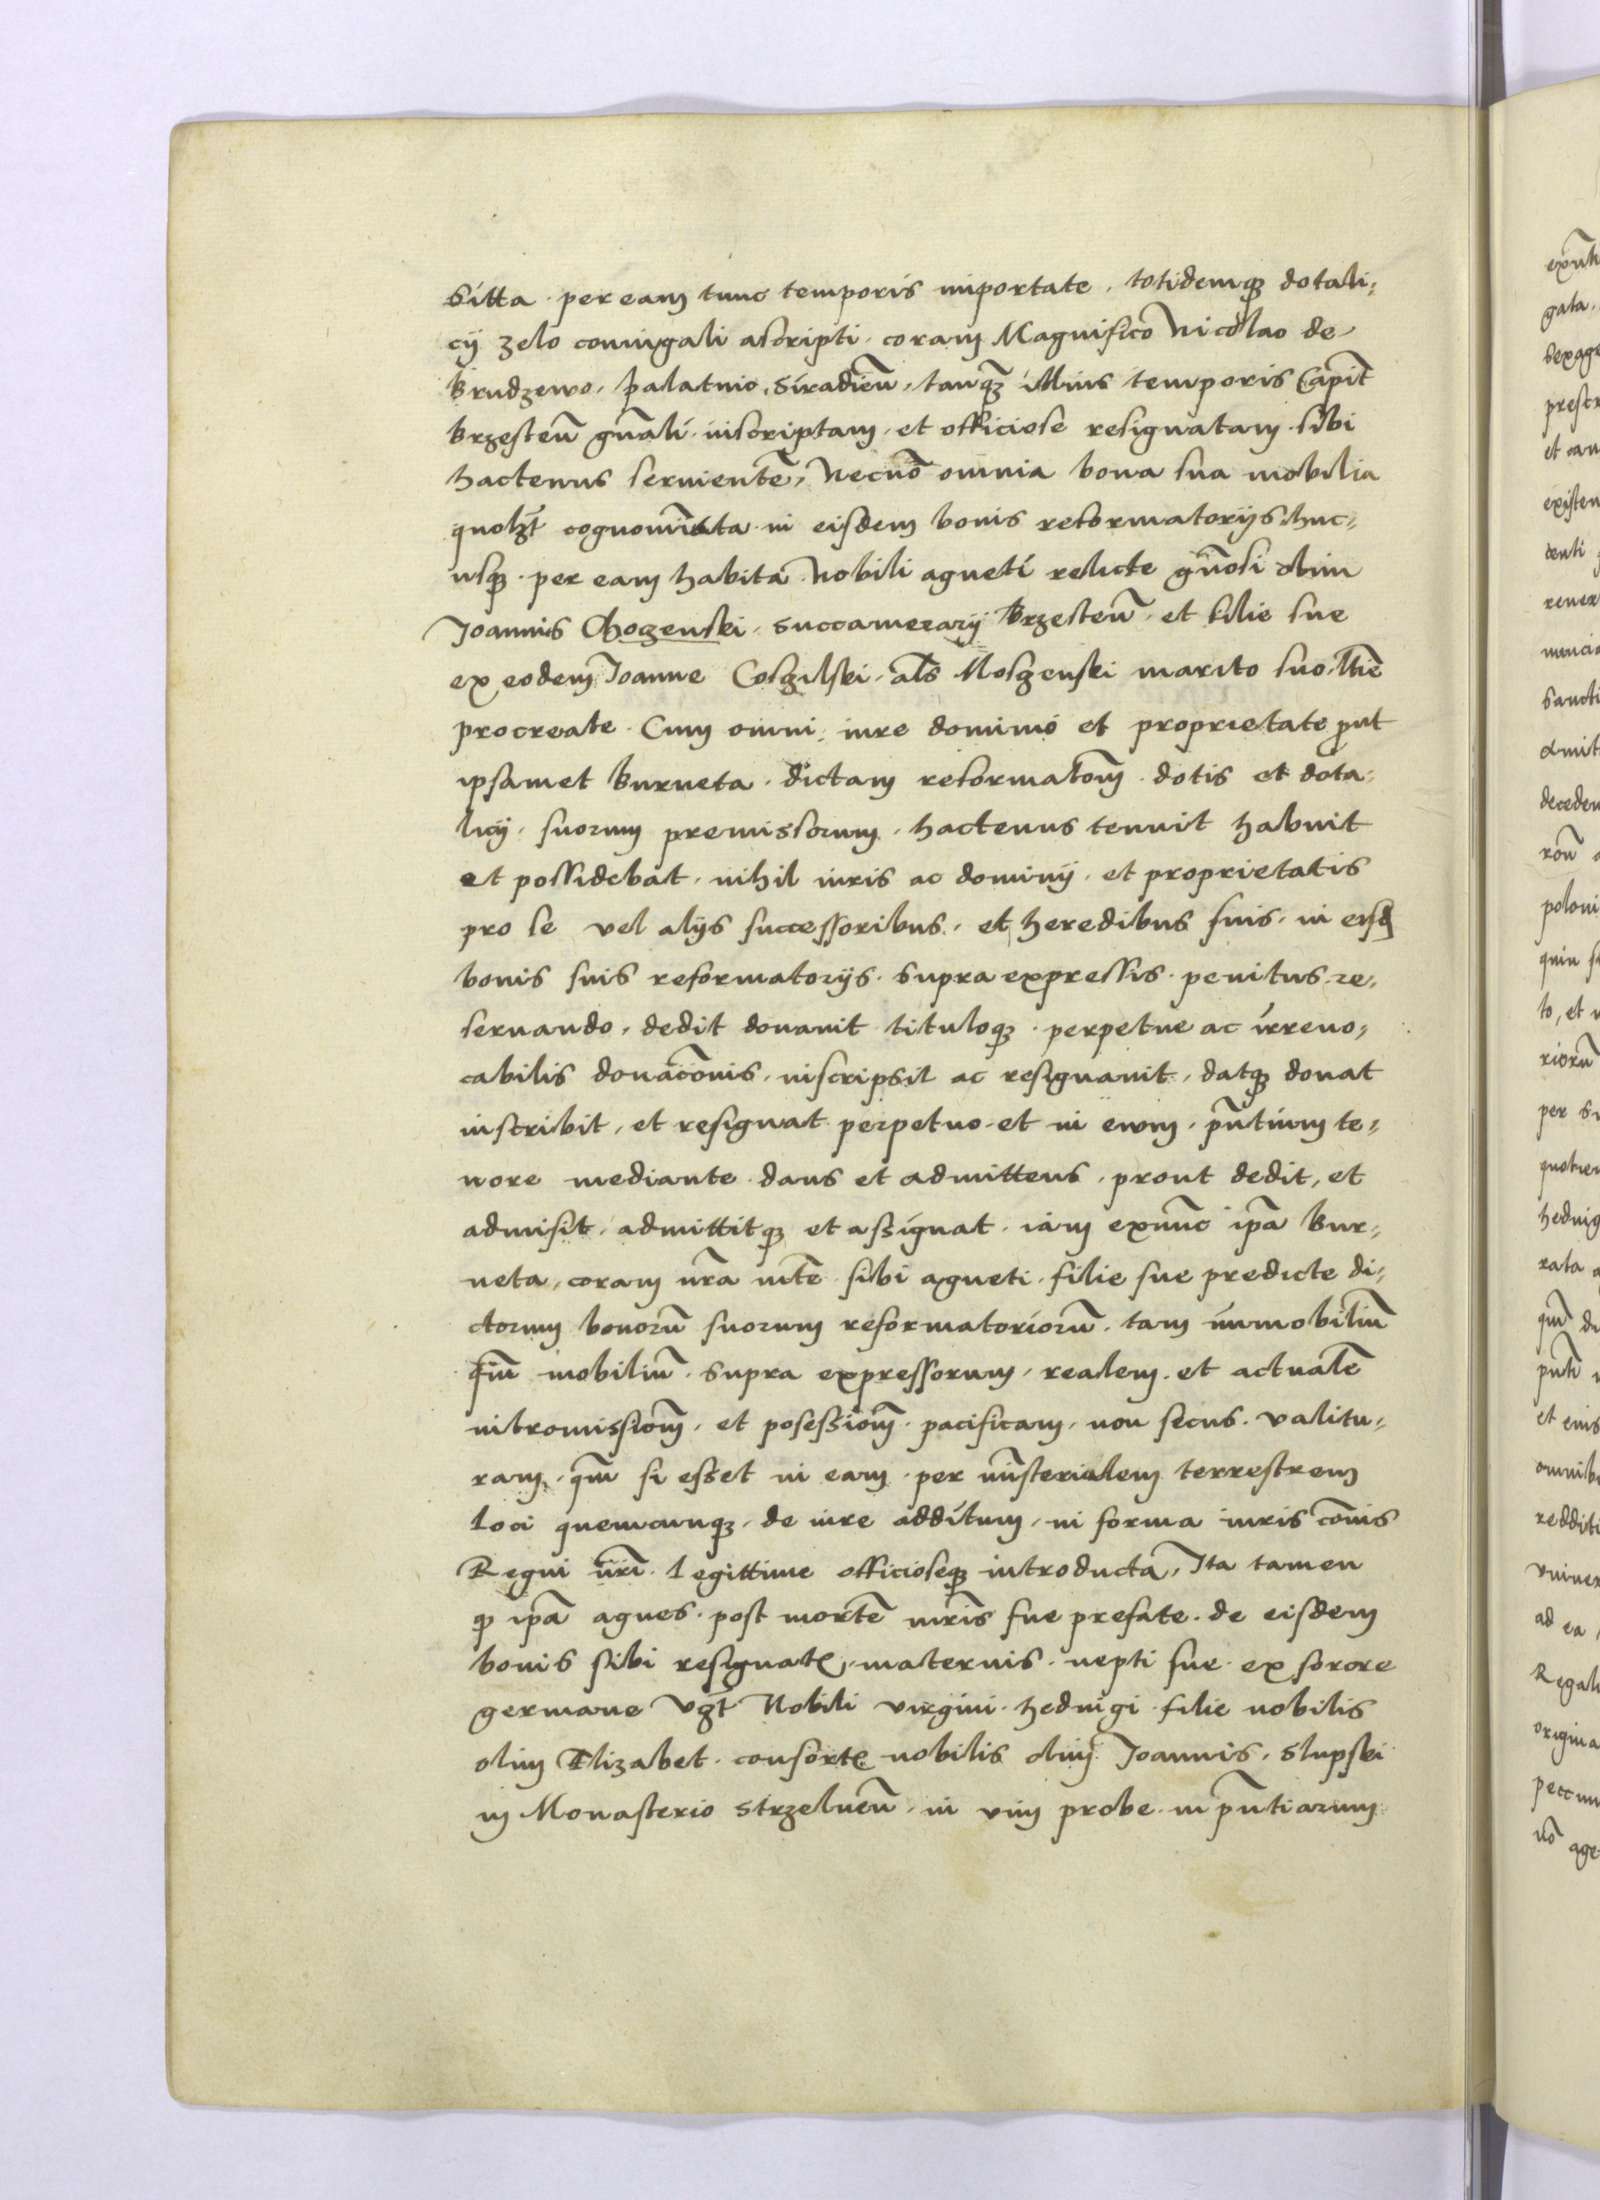 sitta · per eam tunc temporis importate · totidemq₃ dotali⸗
cij zelo coniugali ascripti · coram Magnifico Nicolao de
Brudzewo, palatino Siradien̄, tanq₃ illius temporis Capit̄
Brzesten̄ gn̄ali · inscriptam · et officiose resignatam · sibi
hactenus seruientē, Necnō omnia bona sua mobilia
quolz̄t cognomīata in eisdem bonis reformatorijs huc⸗
usq₃ · per eam habita Nobili agneti relicte gn̄osi olim
Joannis Chozenski · succamerarij Brzesten̄ · et filie sue
ex eodem Joanne Coszilski · als̄ Moszenski marito suo ltīe
procreate · Cum omni iure dominio et proprietate put
ipsamet Burneta · dictam reformatōm · dotis et dota⸗
licij · suorum premissorum · hactenus tenuit habuit
et possidebat · nihil iuris ac dominij · et proprietatis
pro se vel alijs successoribus · et heredibus suis · in eisd
bonis suis reformatorijs · supra expressis · penitus re⸗
seruando · dedit donauit tituloq₃ · perpetue ac irreuo⸗
cabilis donacōnis · inscripsit ac resignauit, datq₃ donat
inscribit, et resignat perpetuo et in euom, pn̄tium te⸗
nore mediante dans et admittens · prout dedit, et
admisit · admittitq₃ et assignat · iam exnunc ip̄a Bur⸗
neta, coram nr̄a mt̄e sibi agneti · filie sue predicte di⸗
ctorum bonorū suorum reformatoriorū · tam immobiliū
qm̄ mobiliū · supra expressorum · realem et actualē
intromissiom̄ · et posessiom̄ · pacificam, non secus · valitu⸗
ram · qm̄ si esset in eam · per mīsterialem terrestrem
loci quemcunq₃ · de iure additum, in forma iuris cōnis
Regni nr̄i · legittime officioseq₃ introducta, Ita tamen
q ip̄a agnes · post mortē mr̄is sue prefate · de eisdem
bonis sibi resignat̄, maternis · nepti sue ex sorore
germane vz̄t Nobili virgini · heduigi · filie nobilis
olim Elizabet · consort̄ nobilis olim Joannis, Slupski
in Monasterio Strzelnen̄ · in vim probe · in pn̄tiarum